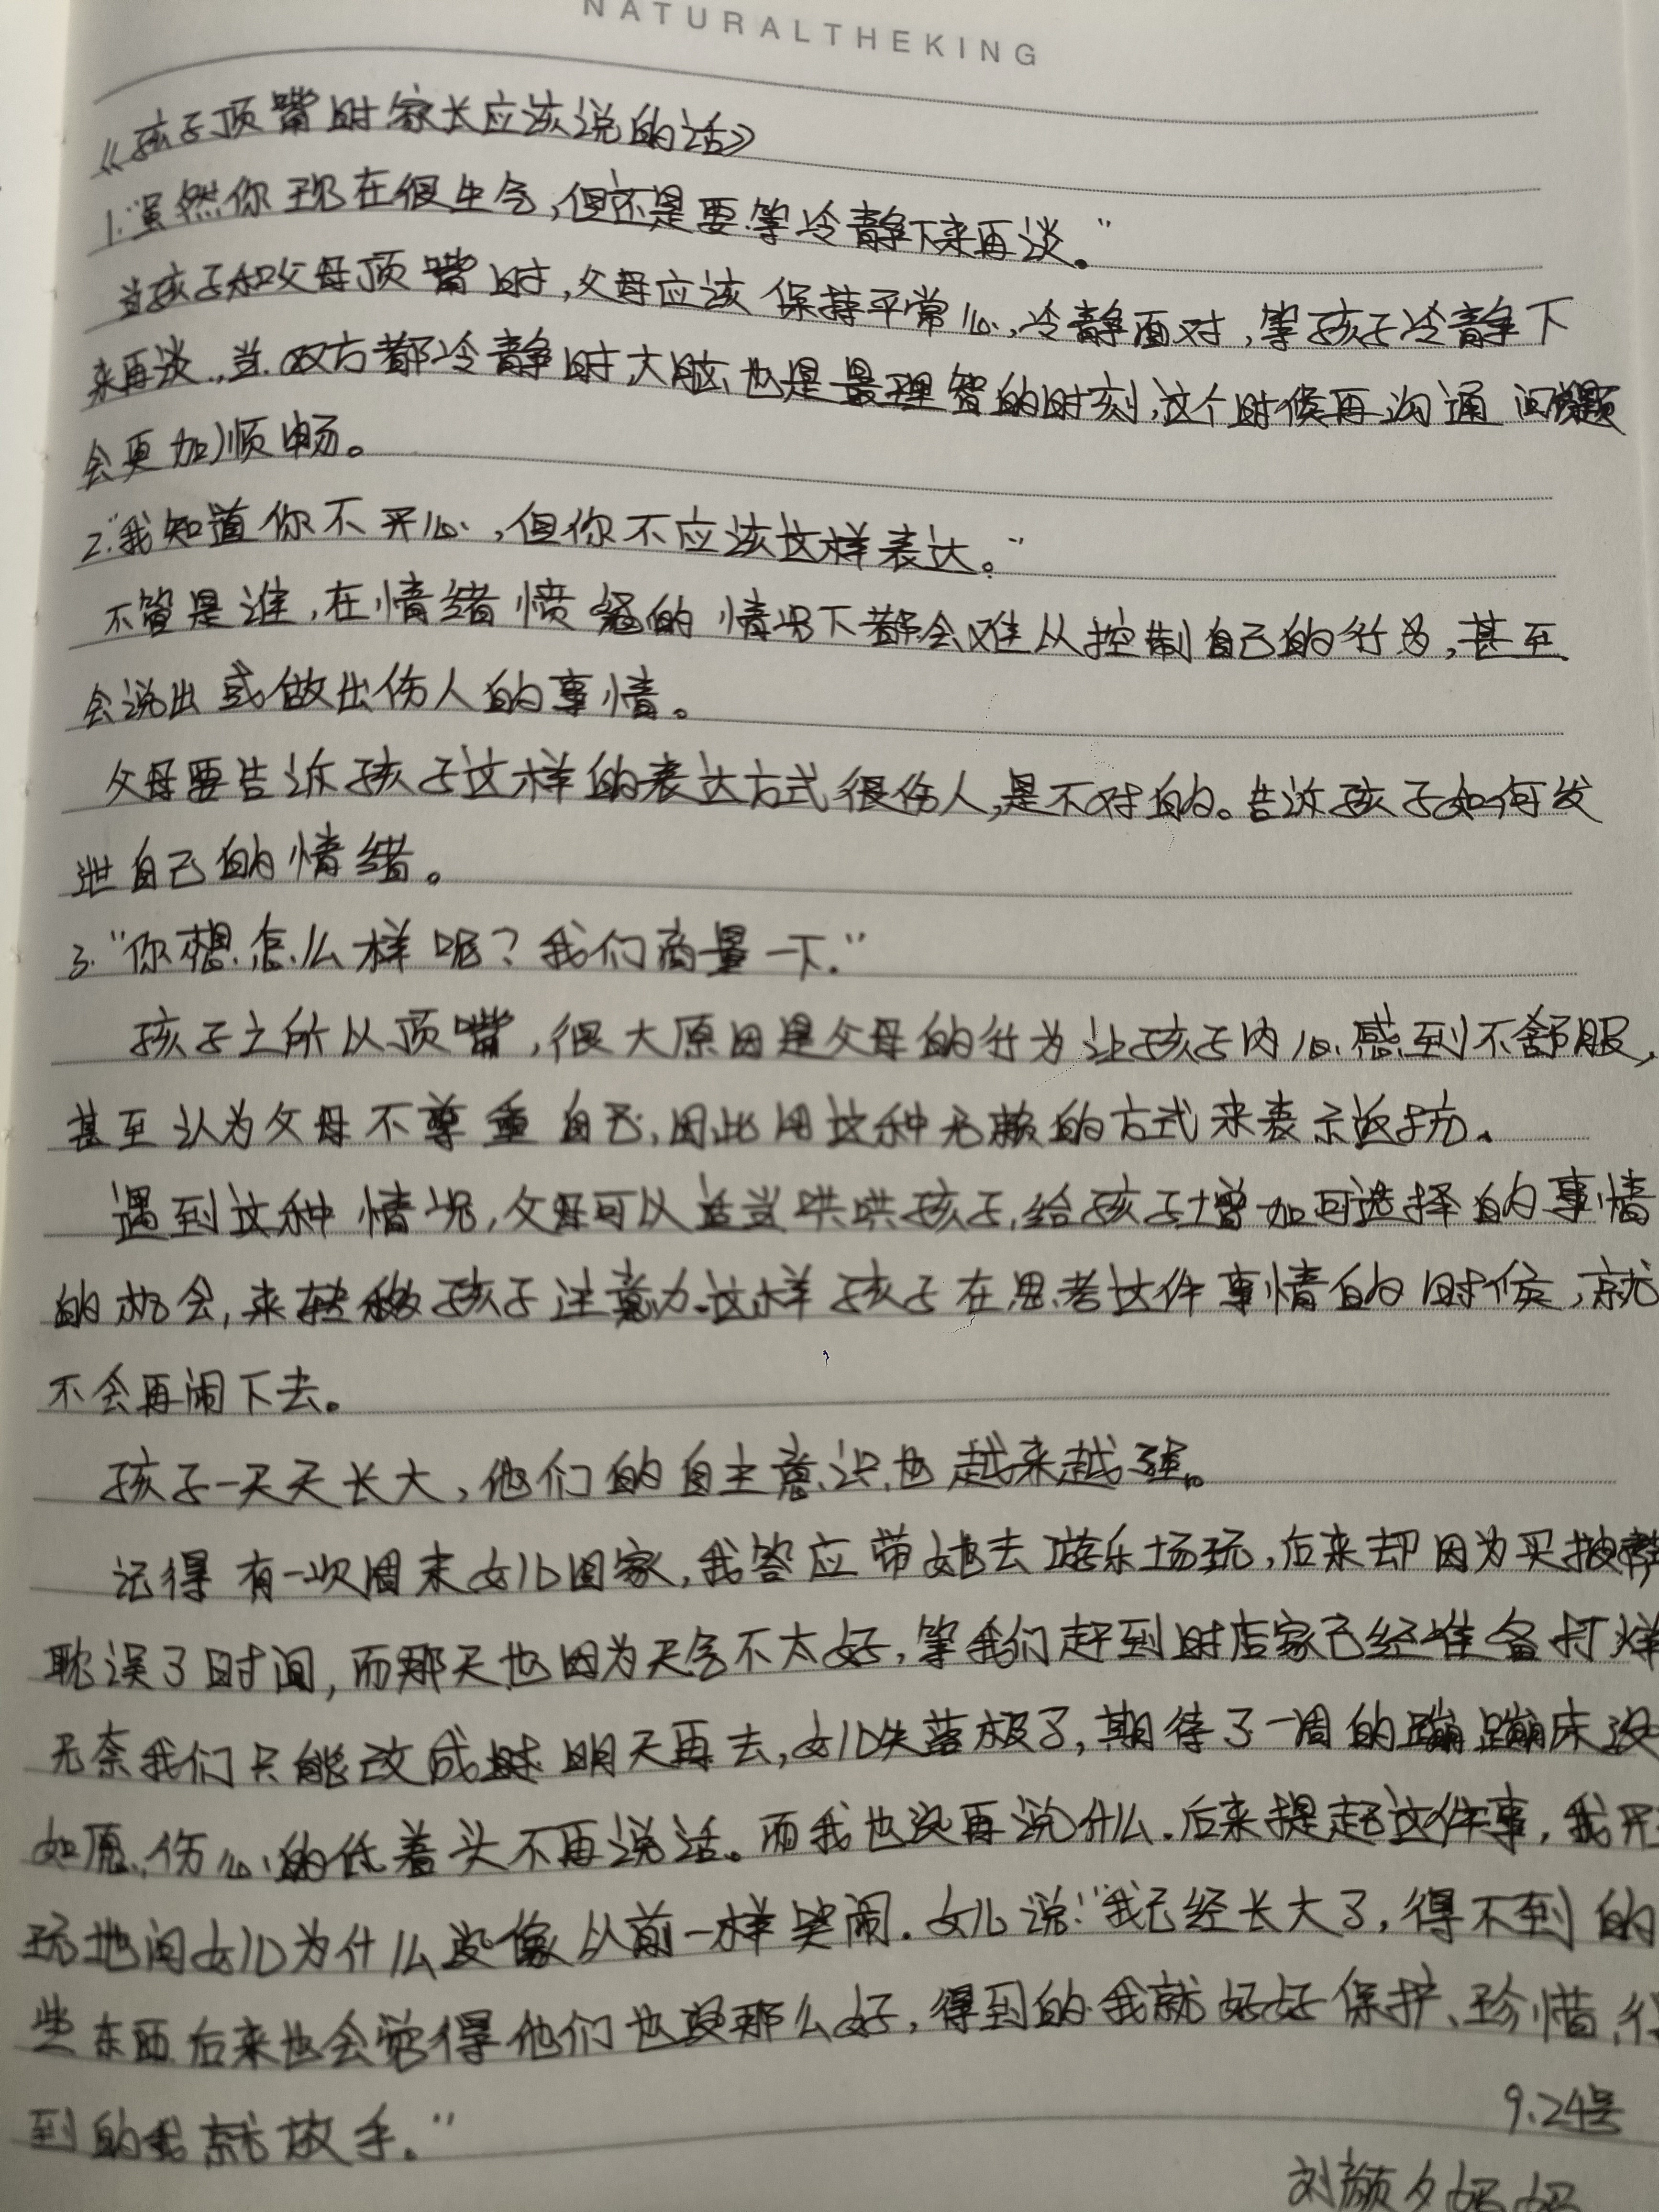 NATURALTHEKING
《孩子顶嘴时家长应该说的话》
1."虽然你现在很生气,但还是要等冷静下来再谈。"
当孩子和父母顶嘴时,父母应该保持平常心,冷静面对,等孩子冷静下
来再谈.当双方都冷静时,大脑也是最理智的时刻,这个时候再沟通问题
会更加顺畅。
2."我知道你不开心,但你不应该这样表达。"
不管是谁,在情绪愤怒的情况下都会难以控制自己的行为,甚至
会说出或做出伤人的事情。
父母要告诉孩子这样的表达方式很伤人,是不对的。告诉孩子如何发
泄自己的情绪。
3."你想怎么样呢?我们商量一下."
孩子之所以顶嘴,很大原因是父母的行为让孩子内心感到不舒服,
甚至认为父母不尊重自己,因此用这种无赖的方式来表示返抗.
遇到这种情况,父母可以适当哄哄孩子,给孩子增加可选择的事情
的机会,来转移孩子注意力.这样孩子在思考这件事情的时候,就
不会再闹下去。
孩子一天天长大,他们的自主意识也越来越强。
记得有一次周末女儿回家,我答应带她去游乐场玩,后来却因为买披萨
耽误了时间,而那天也因为天气不太好,等我们赶到时店家已经准备打烊
无奈我们只能改成 明天再去,女儿失落极了,期待了一周的蹦蹦床没
如愿,伤心的低着头不再说话。而我也没再说什么.后来提起这件事,我开
玩地问女儿为什么没像以前一样哭闹.女儿说:"我已经长大了,得不到的
些东西后来也会觉得他们也没那么好,得到的我就好好保护、珍惜,得
到的我就放手."
9.24号
刘颜夕妈妈